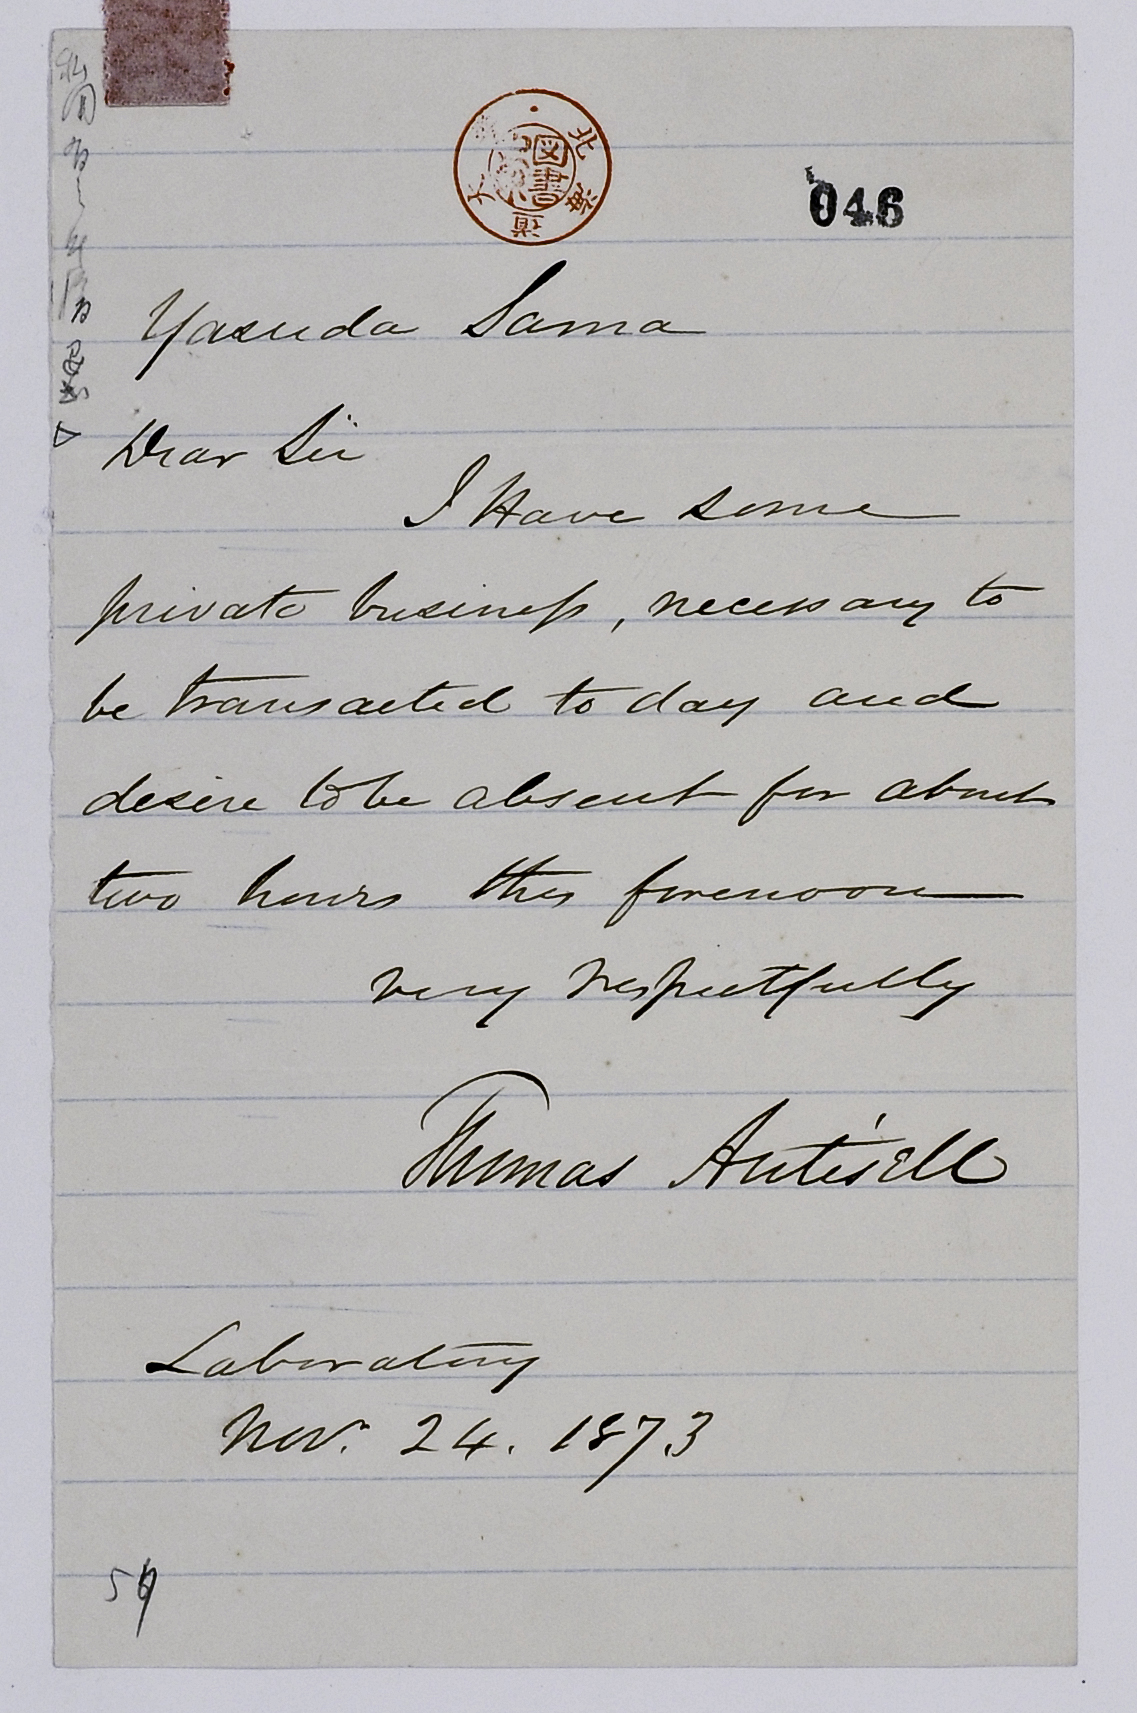 046
北海道大
図書
Yasuda Sama
Dear Sir
I have some
private business, necessary to
be transacted to day and
desire to be absent for about
two hours this forenoon
very respectfully
Thomas Antisell
Laboratory
Nov. 24. 1873